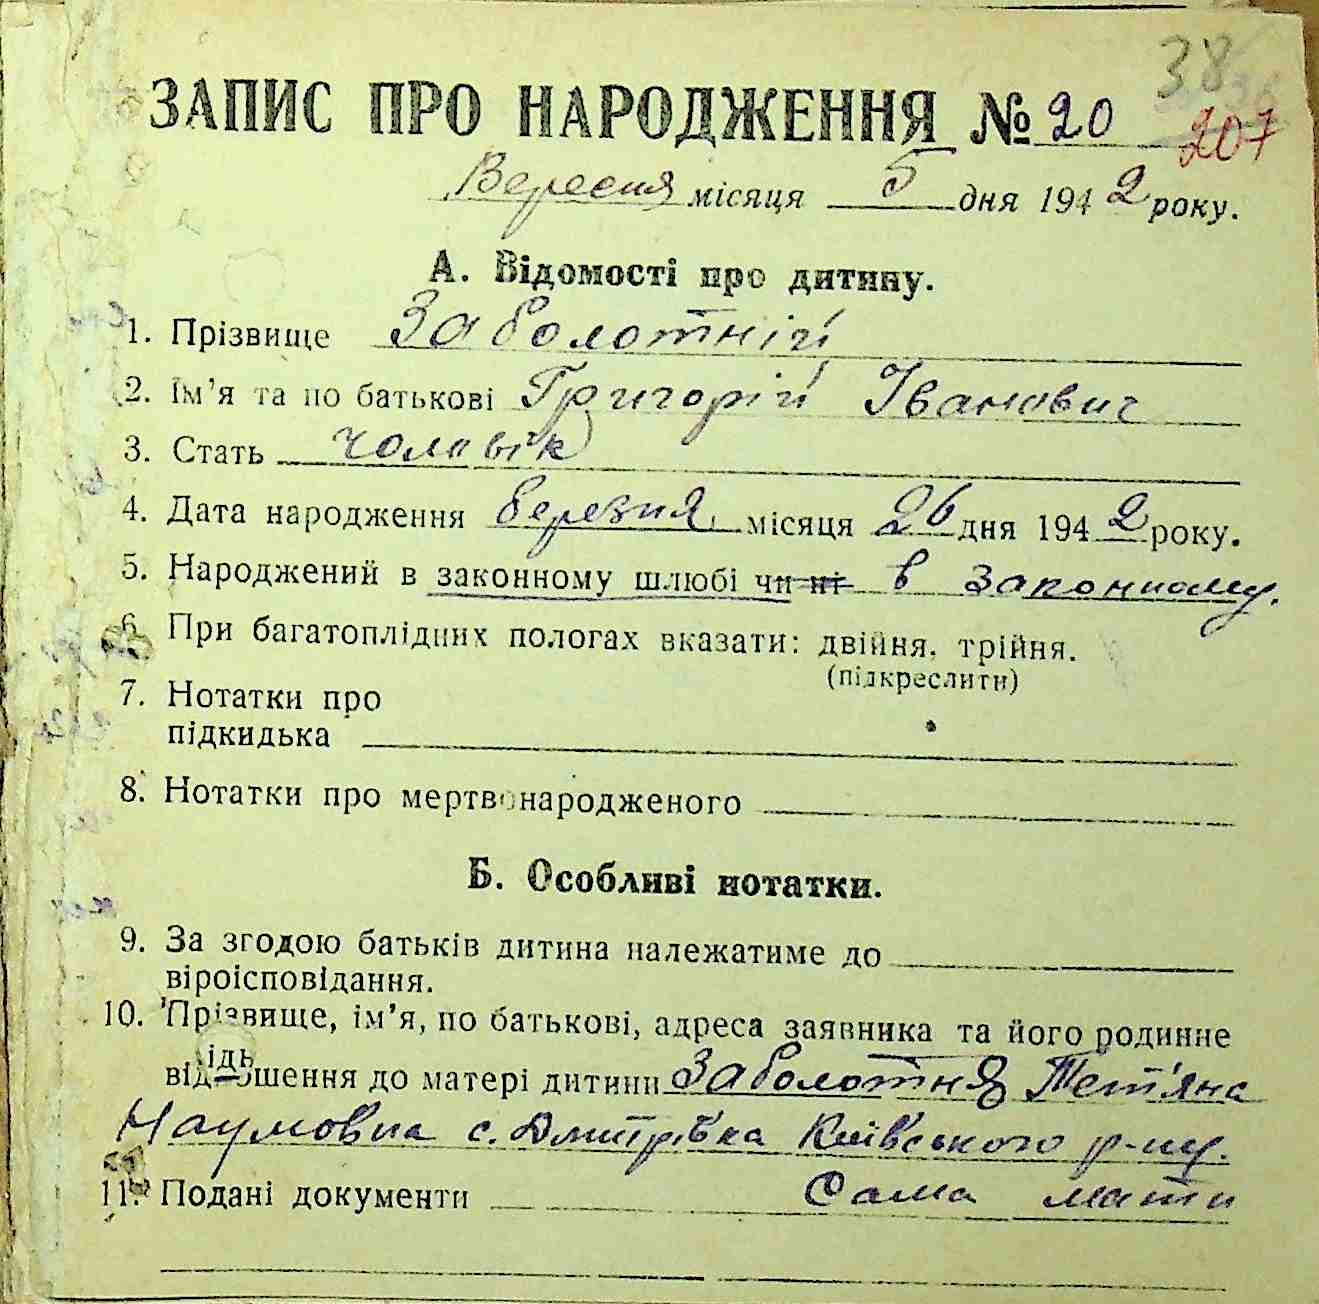 38
207
ЗАПИС ПРО НАРОДЖЕННЯ № 20
Вересня місяця 5 дня 1942 року.
А. Відомості про дитину.
1. Прізвище Заболотній
2. Ім’я та по батькові Григорій Іванович
3. Стать чоловік
4. Дата народження березня місяця 26 дня 1942 року.
5. Народжений в законному шлюбі чи ні в законному.
6. При багатоплідних пологах вказати: двійня, трійня.
(підкреслити)
7. Нотатки про
підкидька
8. Нотатки про мертвонародженого
Б. Особливі нотатки.
9. За згодою батьків дитина належатиме до
віроісповідання.
10. Прізвище, ім’я, по батькові, адреса заявника та його родинне
відношення до матері дитини Заболотня Тет'яна
Наумовна с. Дмитрівка Київського р-ну.
11. Подані документи Сама мати